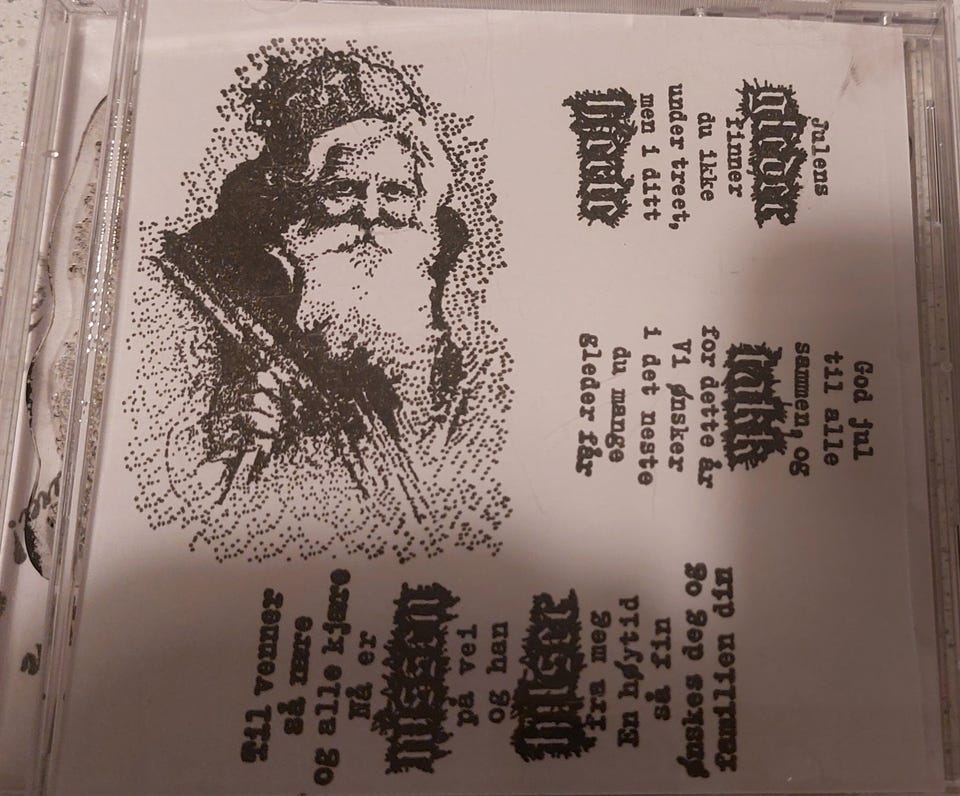 Julens
gleder
finner
du ikke
under treet,
men i ditt
hjerte
God jul
til alle
sammen, og
takk
for dette år
Vi ønsker
i det neste
du mange
gleder får
Til venner
så nære
og alle kjære
Nå er
nissen
på vei
og han
hilser
fra meg
En høytid
så fin
ønskes deg og
familien din